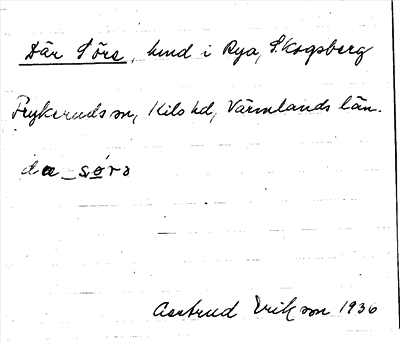 Där Sörs, hmd i Rya, S. Skogsberg
Frykeruds sn, Kils hd, Värmlands län.
da_ søro
Gertrud Erikson 1936